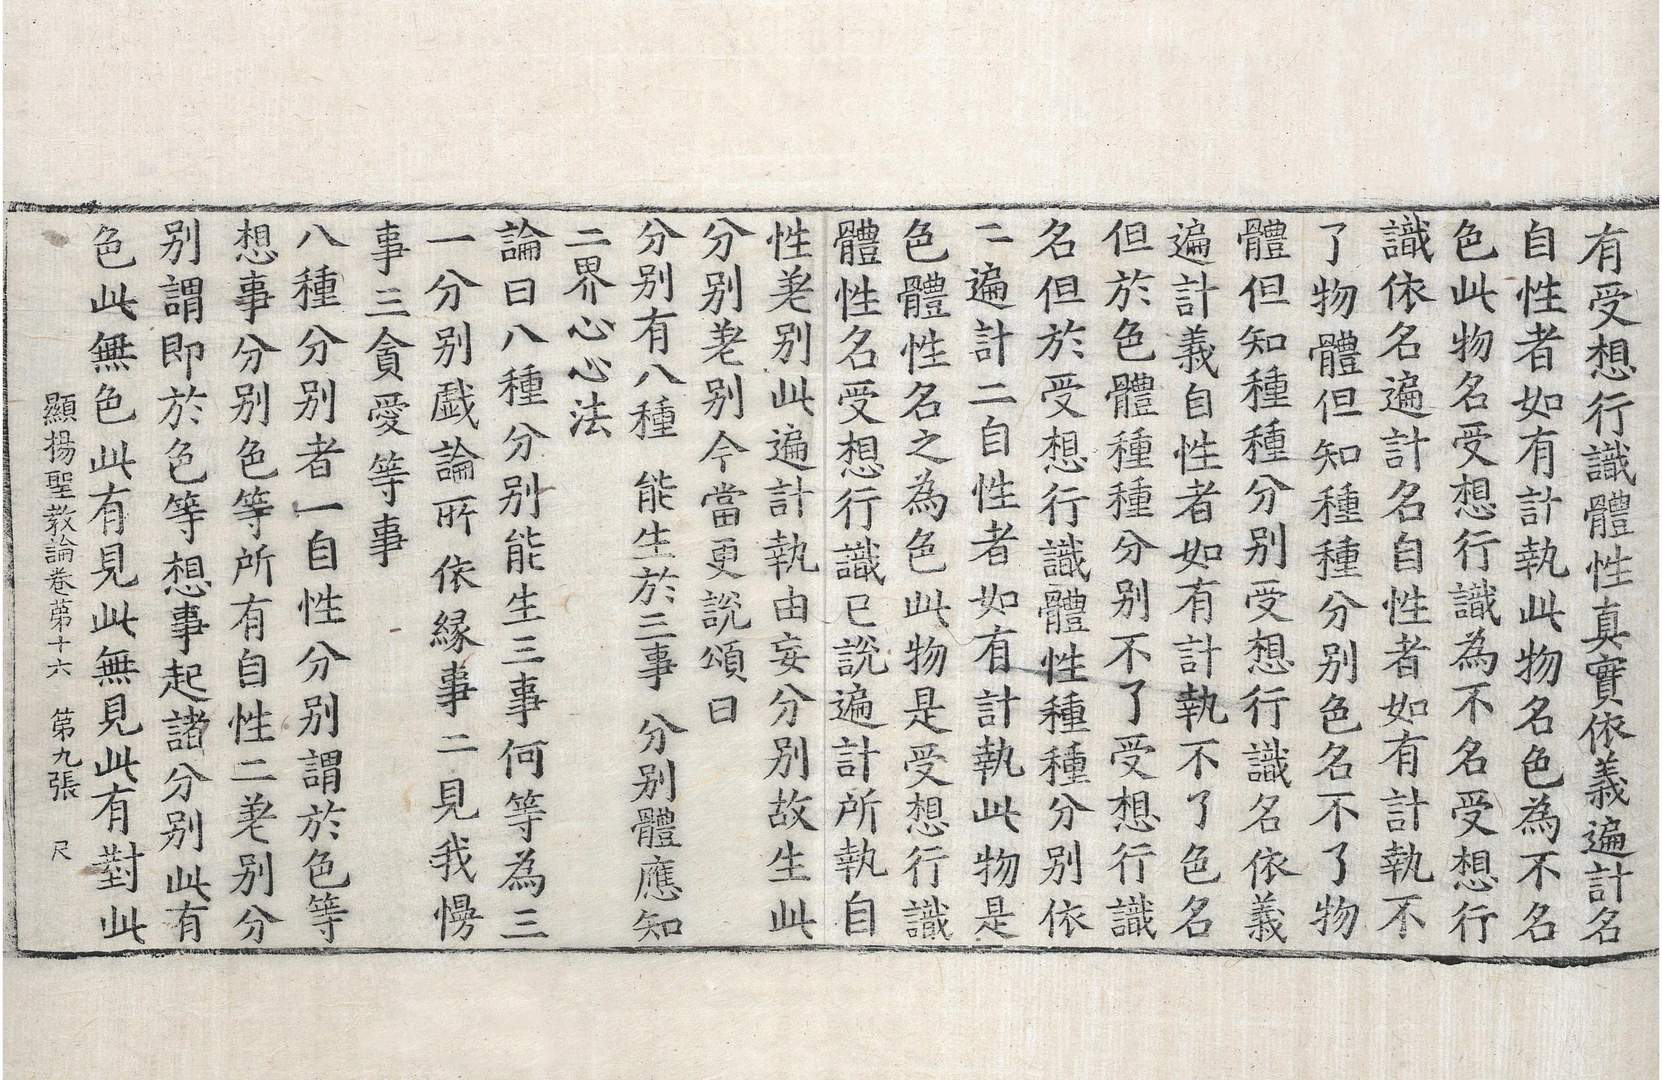 有受想行識體性真實依義遍計名
自性者如有計執此物名色為不名
色此物名受想行識為不名受想行
識依名遍計名自性者如有計執不
了物體但知種種分別色名不了物
體但知種種分別受想行識名依義
遍計義自性者如有計執不了色名
但於色體種種分別不了受想行識
名但於受想行識體性種種分別依
二遍計二自性者如有計執此物是
色體性名之為色此物是受想行識
體性名受想行識已說遍計所執自
性差別此遍計執由妄分別故生此
分別差別今當更說頌曰
分別有八種 能生於三事 分別體應知
二界心心法
論曰八種分別能生三事何等為三
一分別戲論所依緣事二見我慢
事三貪愛等事
八種分別者一自性分別謂於色等
想事分別色等所有自性二差別分
別謂即於色等想事起諸分別此有
色此無色此有見此無見此有對此
顯揚聖教論卷第十六 第九張 尺